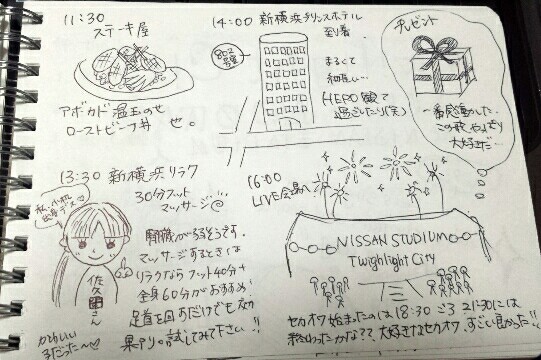 11:30
ステーキ屋
アボカド温玉のせ
ローストビーフ丼
14:00 新横浜プリンスホテル
到着
まるくて
細長い…
HERO観て
過ごしたり(笑)
プレゼント
一番感動した…
この歌やっぱり
大好きだ…
13:30 新横浜リラク
30分フット
マッサージ
出身デス
佐久間さん
かわいい
子だった〜♡
腎臓が弱るそうです。
マッサージするときは
リラクなら フット40分+
全身60分がおすすめ!
足首を回すだけでも効
果アリ。試してみて下さい!!
16:00
LIVE会場へ
NISSAN STUDIUM
Twighlight City
セカオワ始まったのは18:30ごろ 21:30には
終わったかな?? 大好きなセカオワ、すごい良かった!!